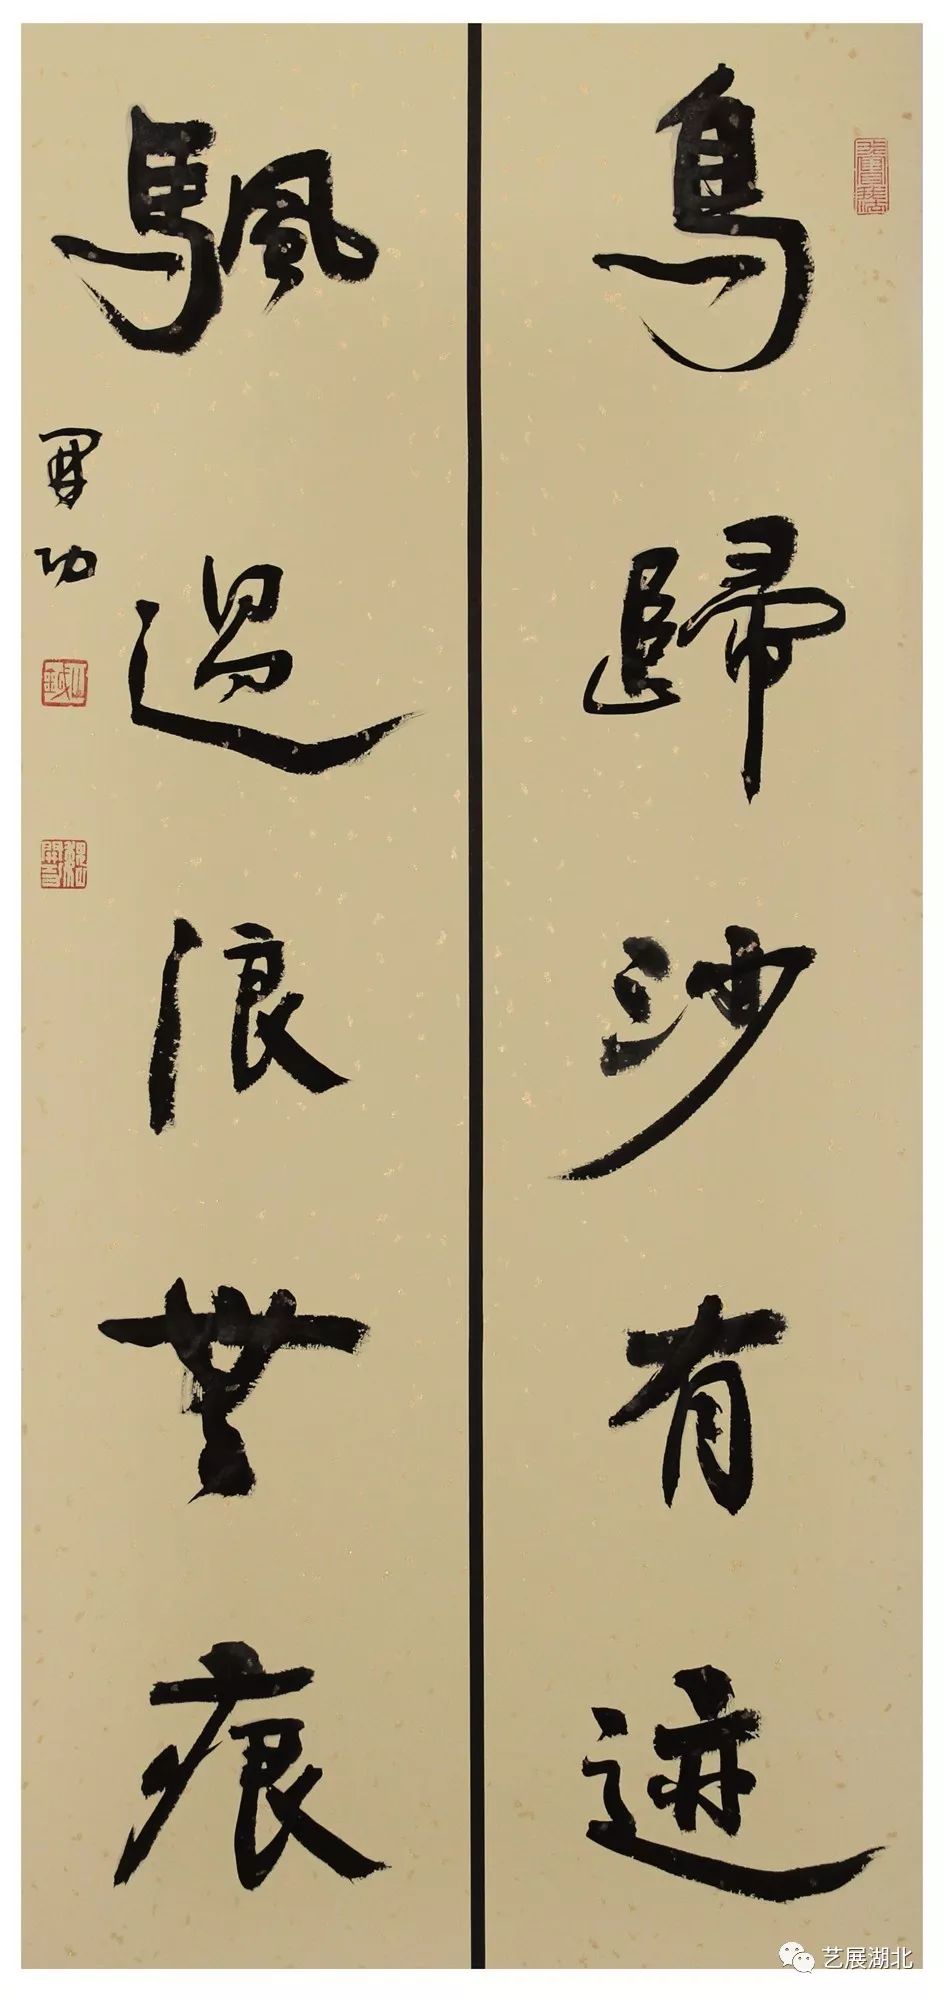 鳥歸沙有迹
颿過浪無痕
艺展湖北